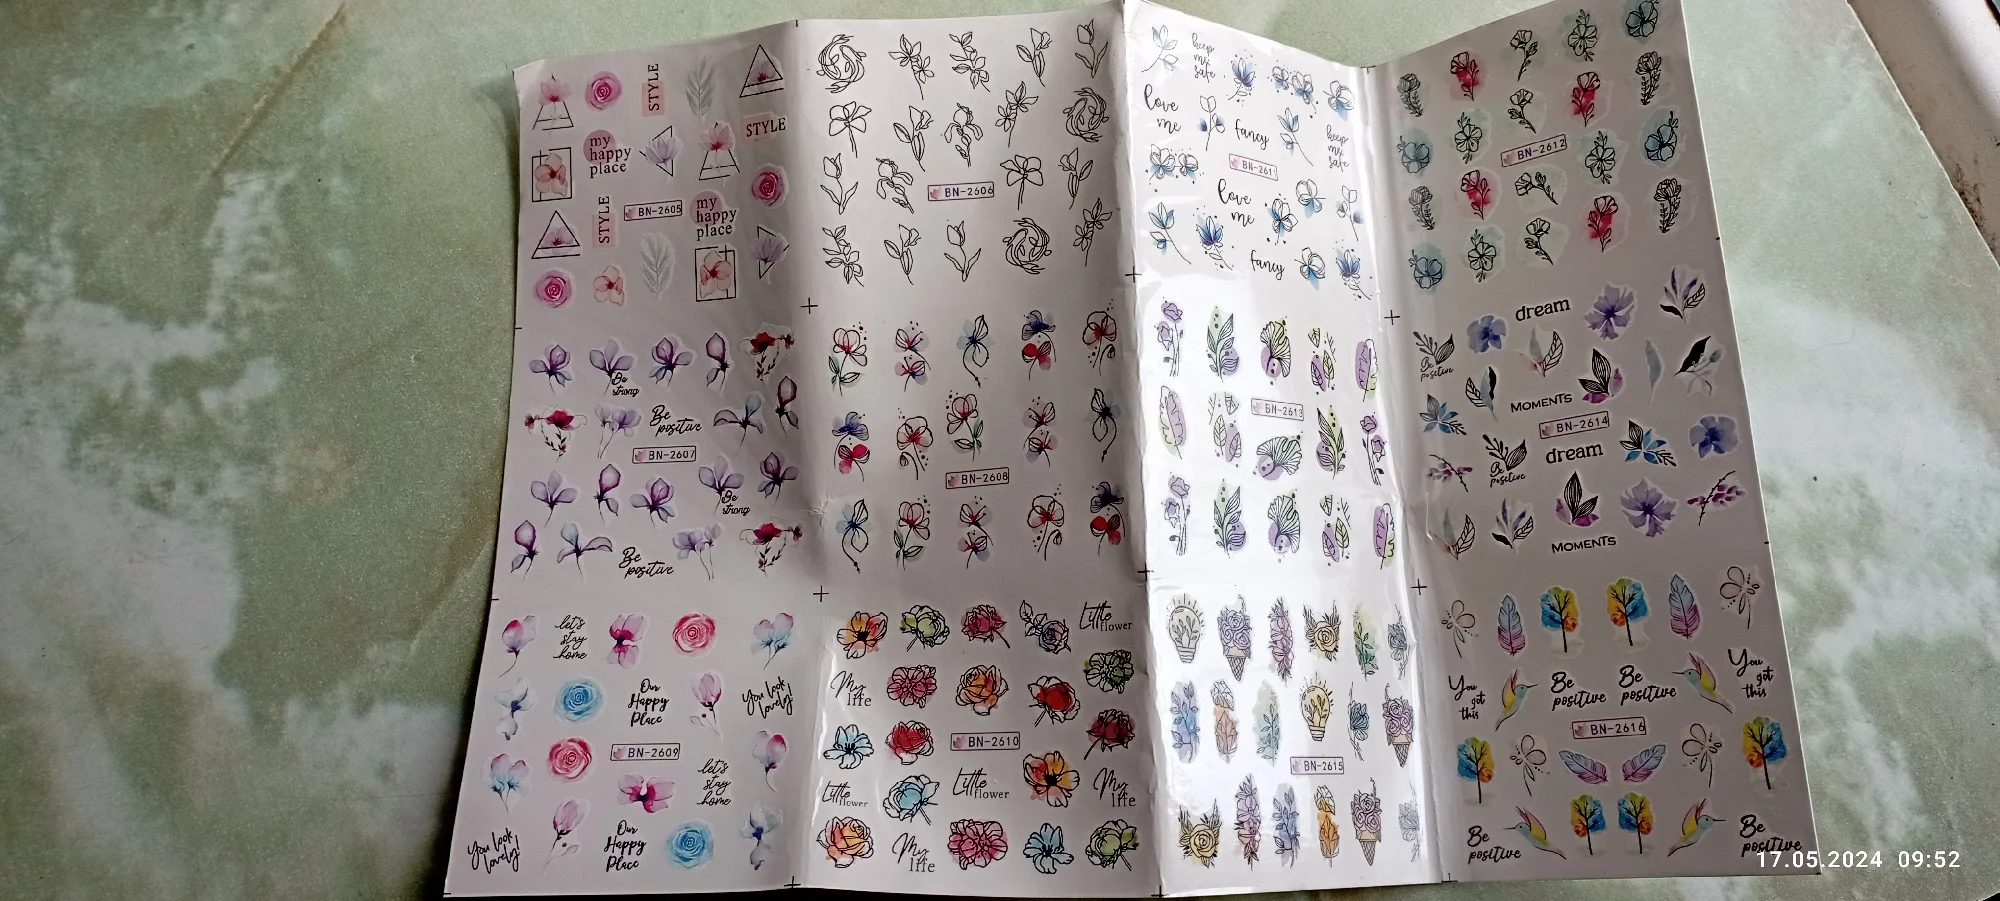 STYLE
STYLE
my
happy
place
STYLE
BN-2605
my
happy
place
BN-2606
keep
me
safe
love
me
fancy
keep
me
safe
BN-2611
love
me
fancy
BN-2612
Be
strong
Be
positive
BN-2607
Be
strong
Be
positive
BN-2608
BN-2613
dream
Be
positive
MOMENTS
BN-2614
Be
positive
dream
MOMENTS
let's
stay
home
Our
Happy
Place
You look
lovely!
BN-2609
let's
stay
home
You look
lovely!
Our
Happy
Place
Little
flower
My
life
BN-2610
Little
flower
Little
flower
My
life
My
life
BN-2615
You
got
this
Be
positive
Be
positive
You
got
this
BN-2616
Be
positive
Be
positive
17.05.2024 09:52